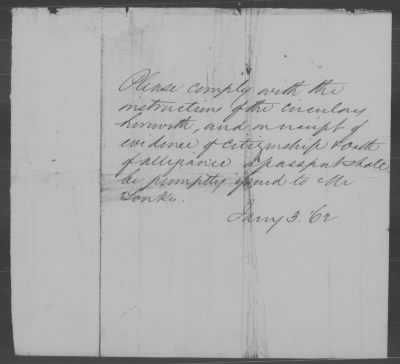 Please comply with the
instructions of the circulars
herewith, and on receipt of
evidence of citizenship & oath
of allegiance a passport shall
be promptly issued to Mr
Jany 3. '62